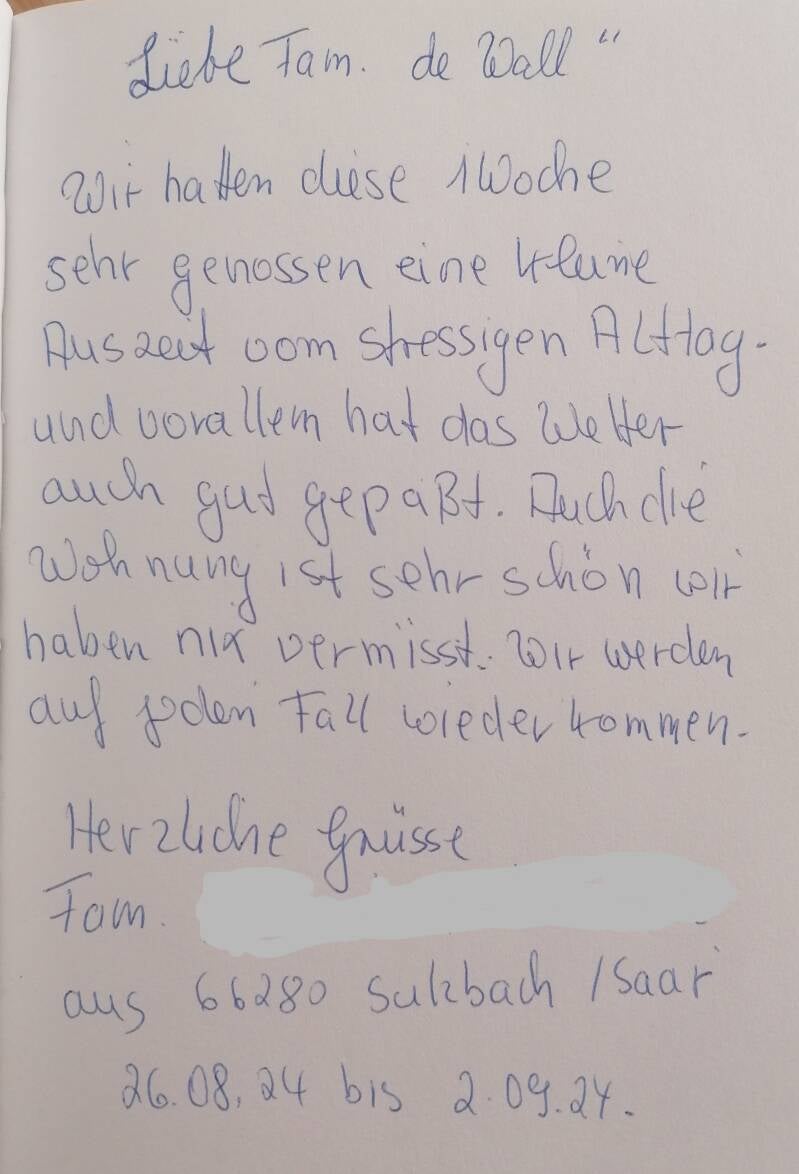 Liebe Fam. de Wall "
Wir hatten diese 1 Woche
sehr genossen eine kleine
Auszeit vom stressigen Alltag.
und vorallem hat das Wetter
auch gut gepaßt. Auch die
Wohnung ist sehr schön wir
haben nix vermisst. Wir werden
auf jeden Fall wieder kommen.
Herzliche Grüsse
Fam.
aus 66280 Sulzbach / Saar
26.08.24 bis 2.09.24.